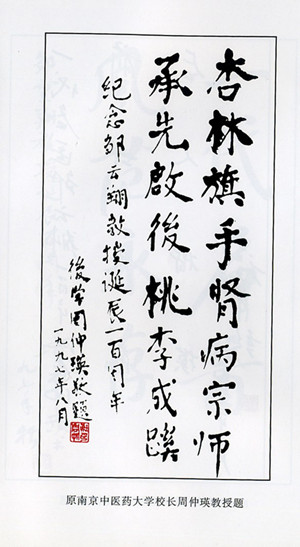 杏林旗手腎病宗师
承先啟後桃李成蹊
纪念邹云翔教授诞辰一百周年
後学周仲瑛敬题
一九九七年八月
原南京中医药大学校长周仲瑛教授题